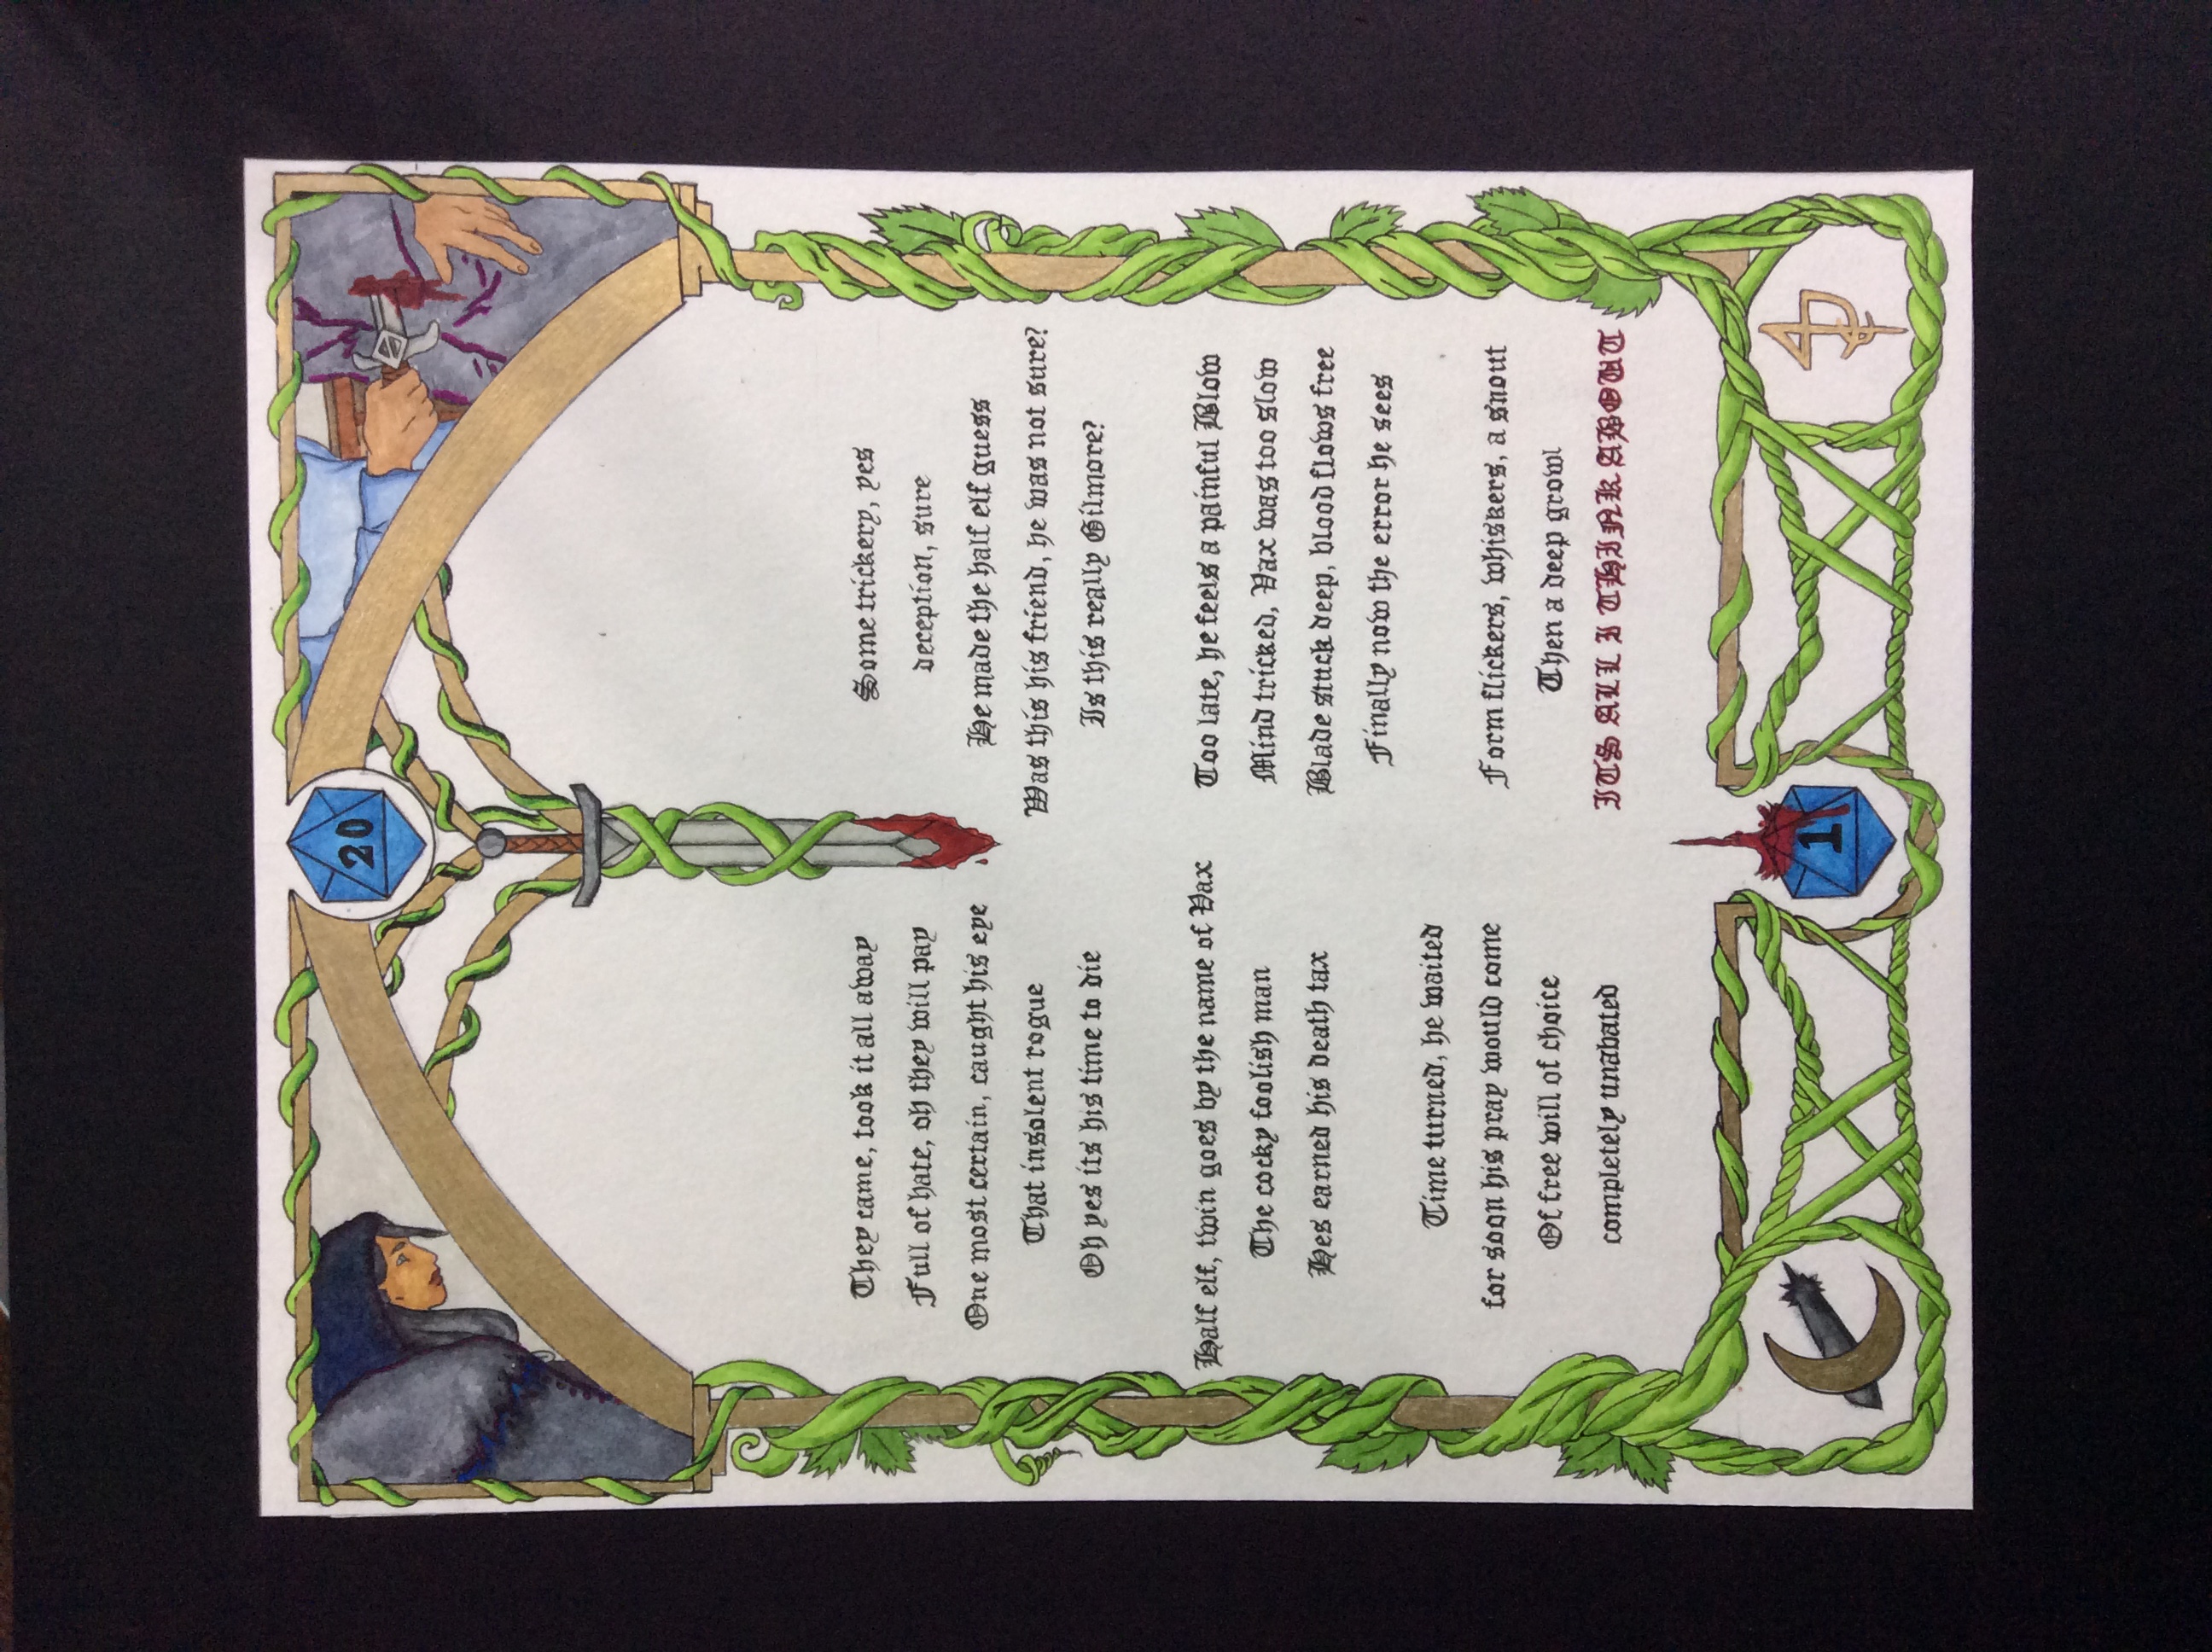 20
They came, took it all away
Full of hate, oh they will pay
One most certain, caught his eye
That insolent rogue
Oh yes its his time to die
Half elf, twin goes by the name of Vax
The cocky foolish man
Hes earned his death tax
Time turned, he waited
for soon his pray would come
Of free will of choice
completely unabated
Some trickery, yes
deception, sure
He made the half elf guess
Was this his friend, he was not sure?
Is this really Gilmore?
Too late, he feels a painful Blow
Mind tricked, Vax was too slow
Blade stuck deep, blood flows free
Finally now the error he sees
Form flickers, whiskers, a snout
Then a deep growl
ITS ALL I THINK ABOUT
1